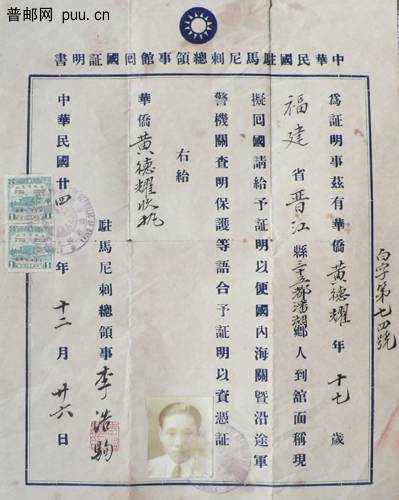 普邮网 puu.cn
中華民國駐馬尼剌總領事館回國証明書
字第七四號
為証明事茲有華僑黃德耀年十七歲
福建省晉江縣五都潘湖鄉人到館面稱現
擬回國請給予証明以便國內海關暨沿途軍
警機關查明保護等語合予証明以資憑証
右給
華僑黃德耀收執
駐馬尼剌總領事李浩駒
中華民國廿四年十二月廿六日